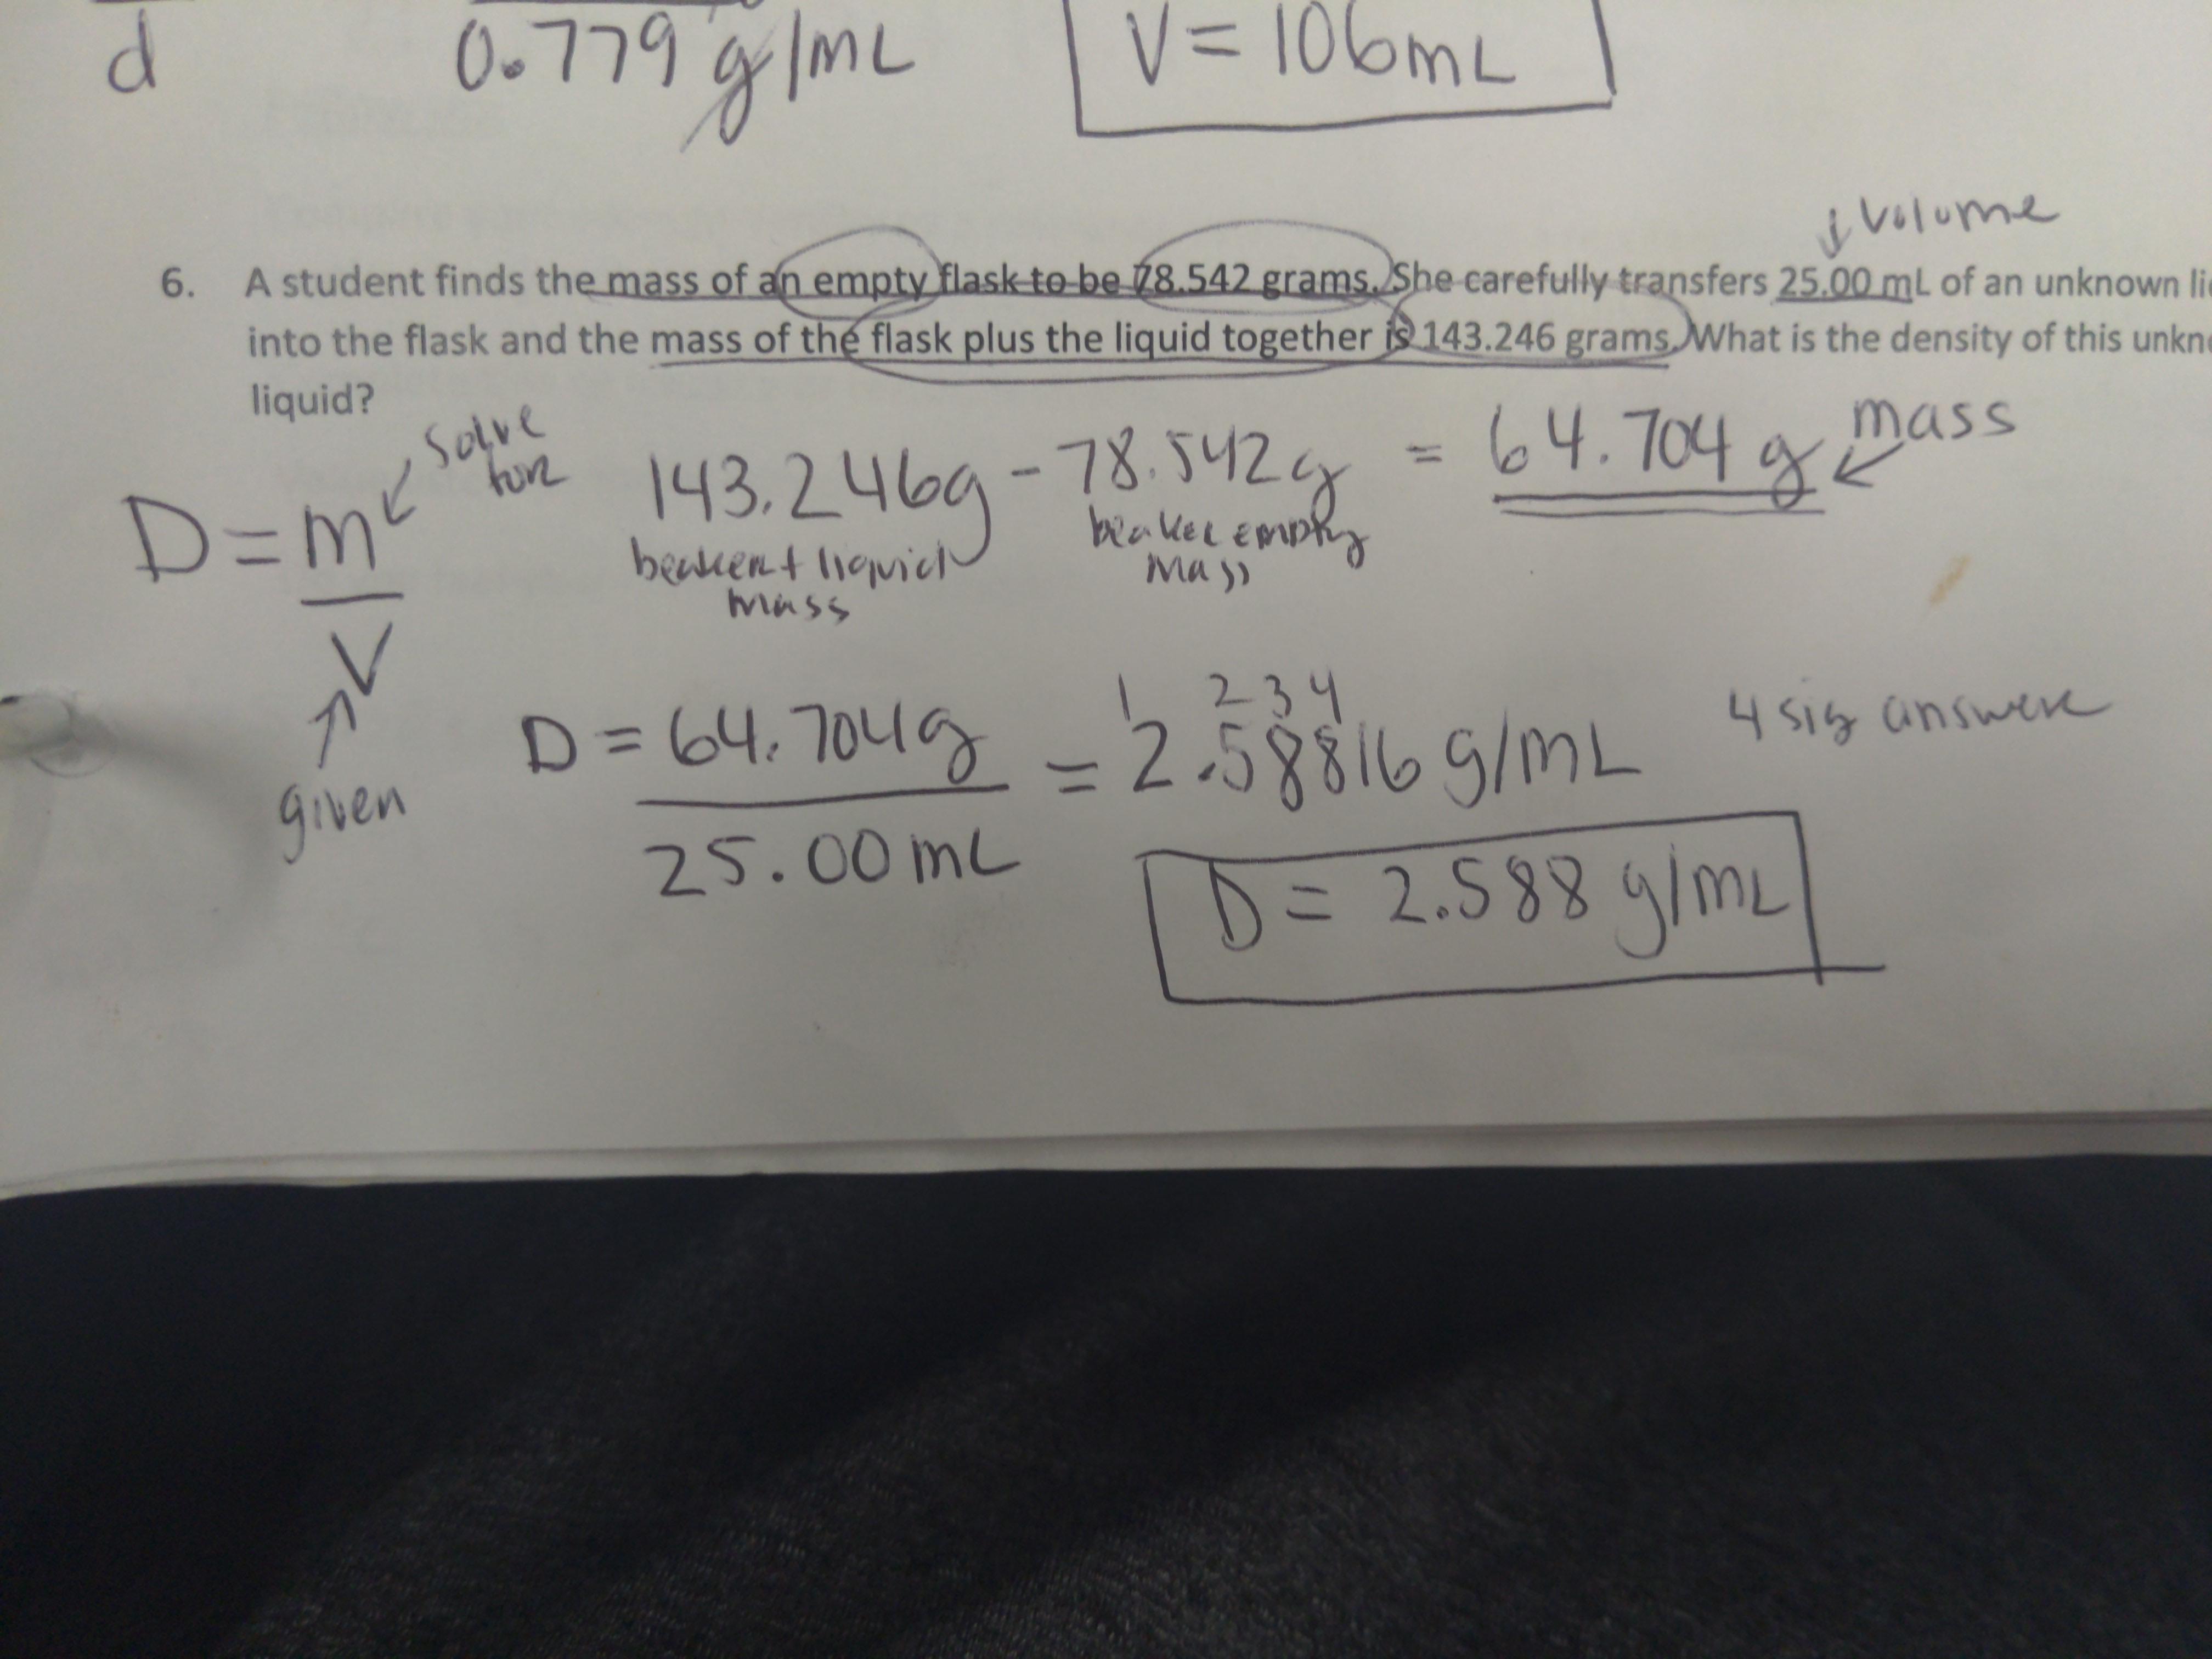 d 0.779 g/mL V = 106mL
↓ Volume
6. A student finds the mass of an empty flask to be 78.542 grams. She carefully transfers 25.00 mL of an unknown
into the flask and the mass of the flask plus the liquid together is 143.246 grams. What is the density of this
liquid?
solve
for
D = m
V
given
143.246g - 78.542g = 64.704 g ← mass
beaker + liquid
mass
beaker empty
mass
1 2 3 4
D = 64.704g = 2.58816 g/mL 4 sig answer
25.00 mL
D = 2.588 g/mL